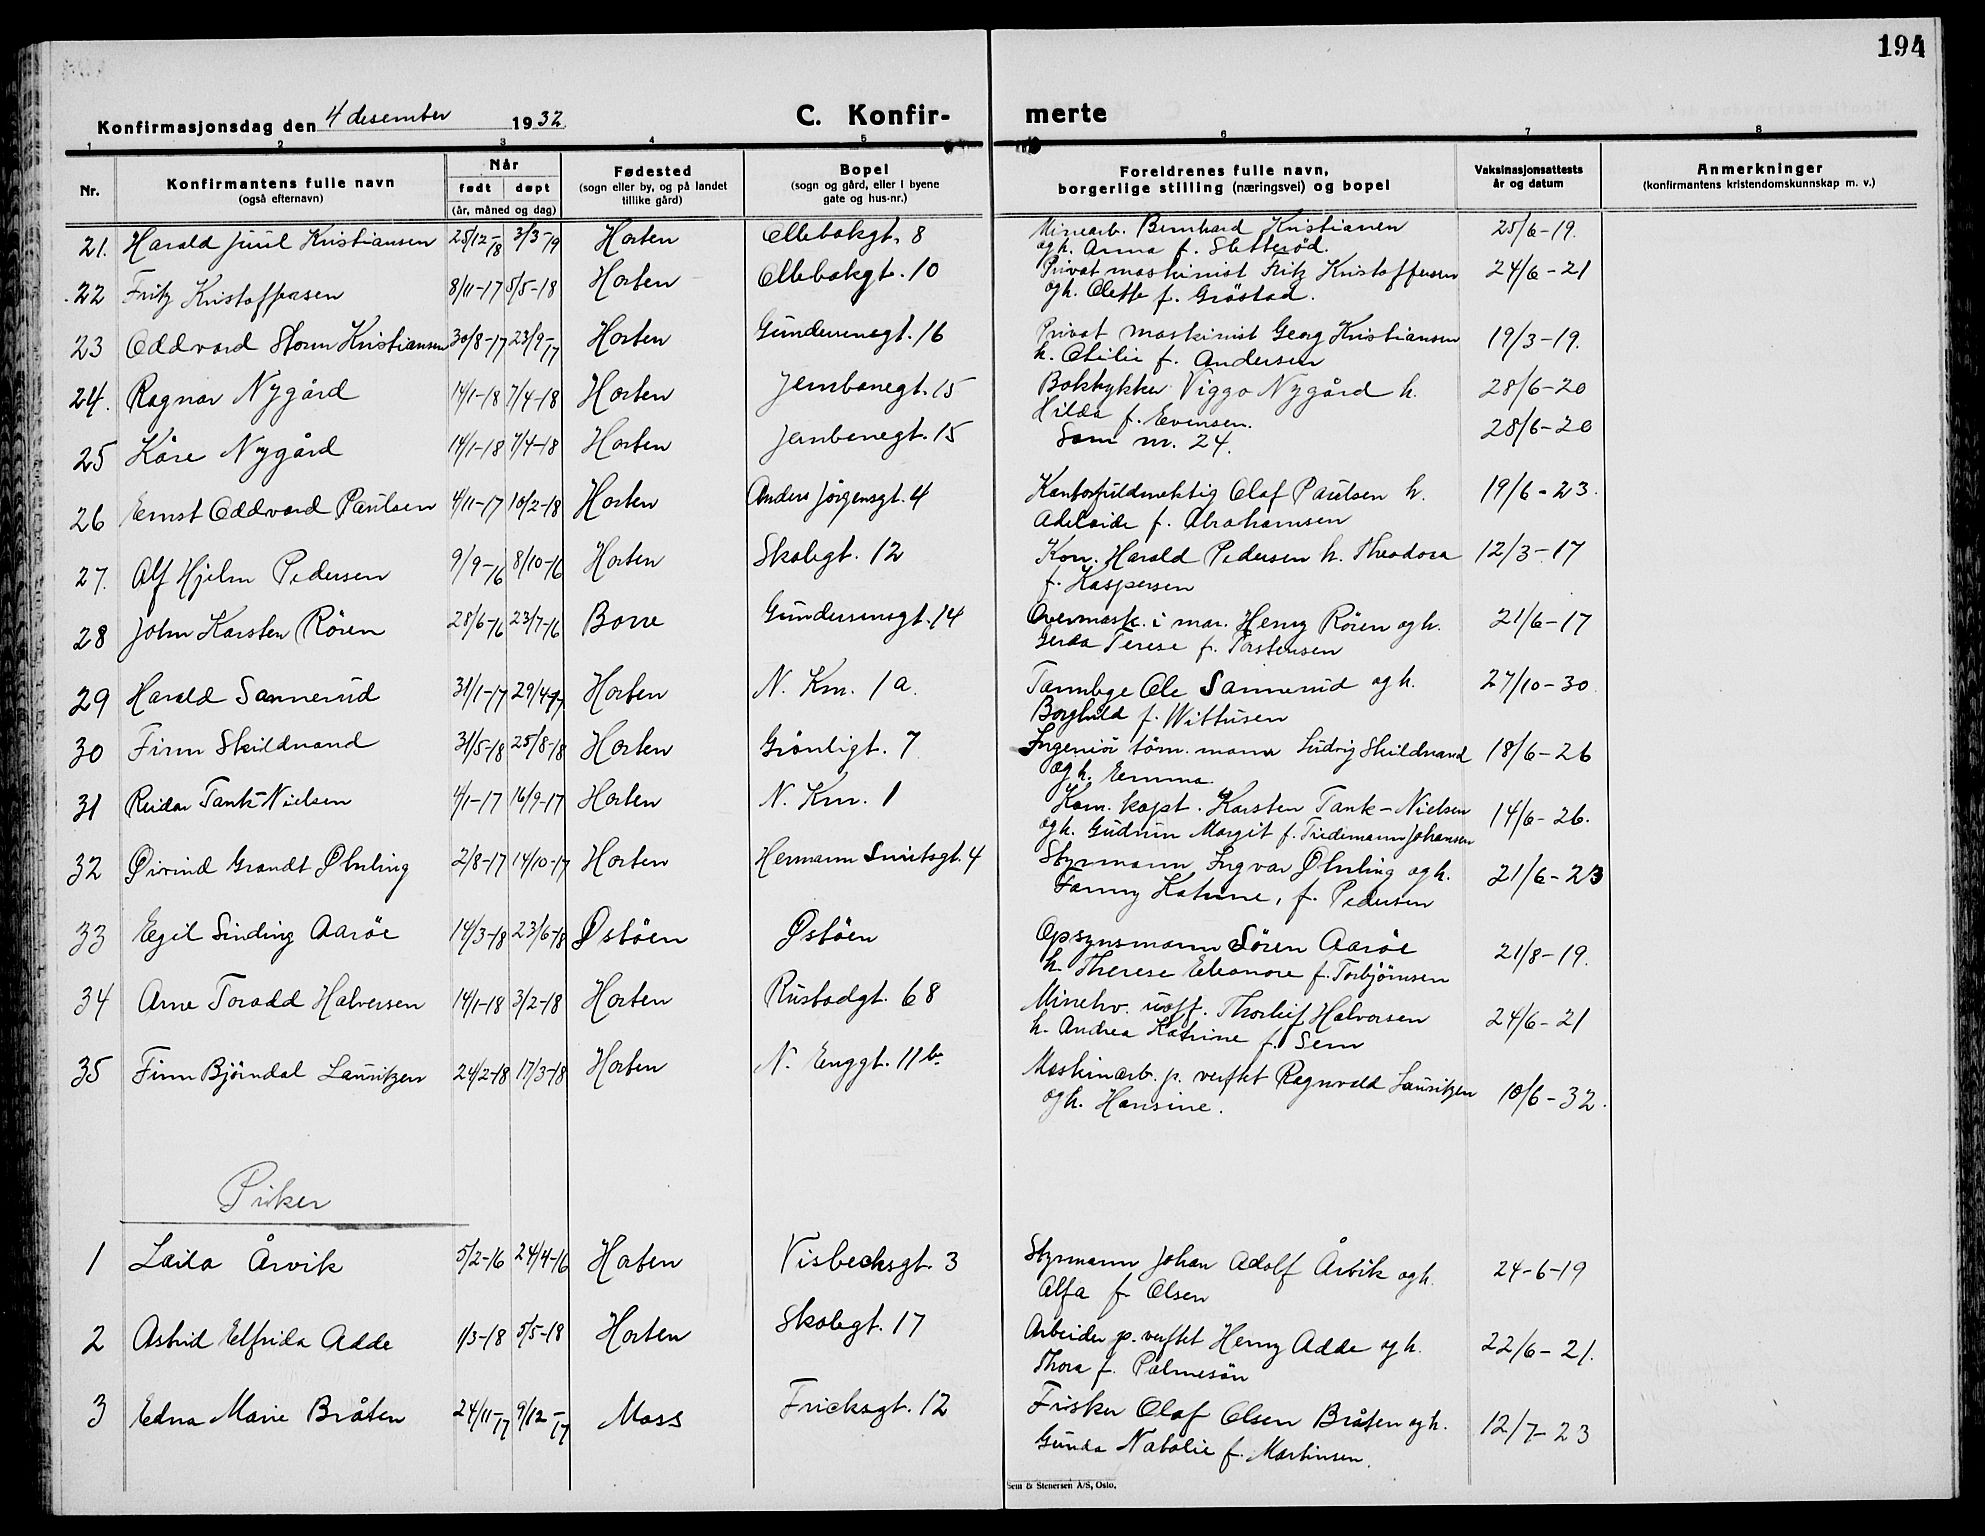 194
Konfirmasjonsdag den 4 desember 1932
C. Konfir- merte
1 2 3 4 5 6 7 8
Nr.
Konfirmantens fulle navn
(også efternavn)
Når
født døpt
(år, måned og dag)
Fødested
(sogn eller by, og på landet
tillike gård)
Bopel
(sogn og gård, eller i byene
gate og hus-nr.)
Foreldrenes fulle navn,
borgerlige stilling (næringsvei) og bopel
Vaksinasjonsattests
år og datum
Anmerkninger
(konfirmantens kristendomskunnskap m. v.)
21. Harald Juul Kristiansen 25/12-18 3/3-19 Horten Ollebakgt. 8 Minearb. Bernhard Kristiansen 25/6-19.
og h. Anna f. Sletterød.
22 Fritz Kristoffersen 8/11-17 5/5-18 Horten Ollebakgt. 10 Privat maskinist Fritz Kristoffersen 24/6-21
og h. Olette f. Gröstad.
23 Oddvard Storm Kristiansen 30/8-17 23/9-17 Horten Gundersensgt. 16 Privat maskinist Georg Kristiansen 19/3-19.
h. Otilie f. Andersen
24. Ragnar Nygård 14/1-18 7/4-18 Horten Jernbanegt. 15 Boktrykker Viggo Nygård h. 28/6-20
Hilda f. Evensen.
25 Kåre Nygård 14/1-18 7/4-18 Horten Jernbanegt. 15 Som nr. 24. 28/6-20
26 Ernst Oddvard Paulsen 4/11-17 10/2-18 Horten Anders Jörgensgt. 4 Kontorfuldmektig Olaf Paulsen h. 19/6-23.
Adelaide f. Abrahamsen
27. Alf Hjelm Pedersen 9/9-16 8/10-16 Horten Skolegt. 12 Kon. Harald Pedersen h. Theodora 12/3-17
f. Kaspersen
28 John Karsten Rören 28/6-16 23/7-16 Borre Gundersensgt. 14 Overmask. i mar. Henry Rören og h. 21/6-17
Gerda Terese f. Torstensen
29 Harald Sannerud 31/1-17 29/4-17 Horten N. Km. 1a. Tannlege Ole Sannerud og h. 27/10-30
Borghild f. Withusen
30 Finn Skildnand 31/5-18 25/8-18 Horten Grönligt. 7 Ingeniör töm. mann Ludvig Skildnand 18/6-26
og h. Emma.
31 Reidar Tank-Nielsen 4/1-17 16/9-17 Horten N. Km. 1 Kom. kapt. Karsten Tank-Nielsen 14/6-26.
og h. Gudrun Margit f. Tiedemann Johansen
32 Øivind Grandt Øhrling 2/8-17 14/10-17 Horten Hermann Smitsgt. 4 Styrmann Ingvar Øhrling og h. 21/6-23
Fanny Katrine, f. Pedersen
33 Egil Sinding Aaröe 14/3-18 23/6-18 Østöen Østöen Opsynsmann Sören Aaröe 21/8-19.
h. Therese Eleonore f. Torbjörnsen
34 Arne Toradd Halvorsen 14/1-18 3/2-18 Horten Rustadgt. 68 Minehv. uoff. Thorleif Halvorsen 24/6-21
h. Andrea Katrine f. Sem
35 Finn Björndal Lauritzen 24/2-18 17/3-18 Horten N. Enggt. 11b. Maskinarb. p. verftet Ragnvald Lauritzen 10/6-32.
og h. Hansine.
Piker
1 Laila Årvik 5/2-16 24/4-16 Horten Visbecksgt. 3 Styrmann Johan Adolf Årvik og h. 24-6-19
Alfa f. Olsen
2 Astrid Elfrida Adde 1/3-18 5/5-18 Horten Skolegt. 17 Arbeider p. verftet Henry Adde og h. 22/6-21.
Thora f. Palmesön
3 Edna Marie Bråten 24/11-17 9/12-17 Moss Fricksgt. 12 Fisker Olaf Olsen Bråten og h. 12/7-23
Gunda Natalie f. Martinsen.
Sem & Stenersen A/S, Oslo.